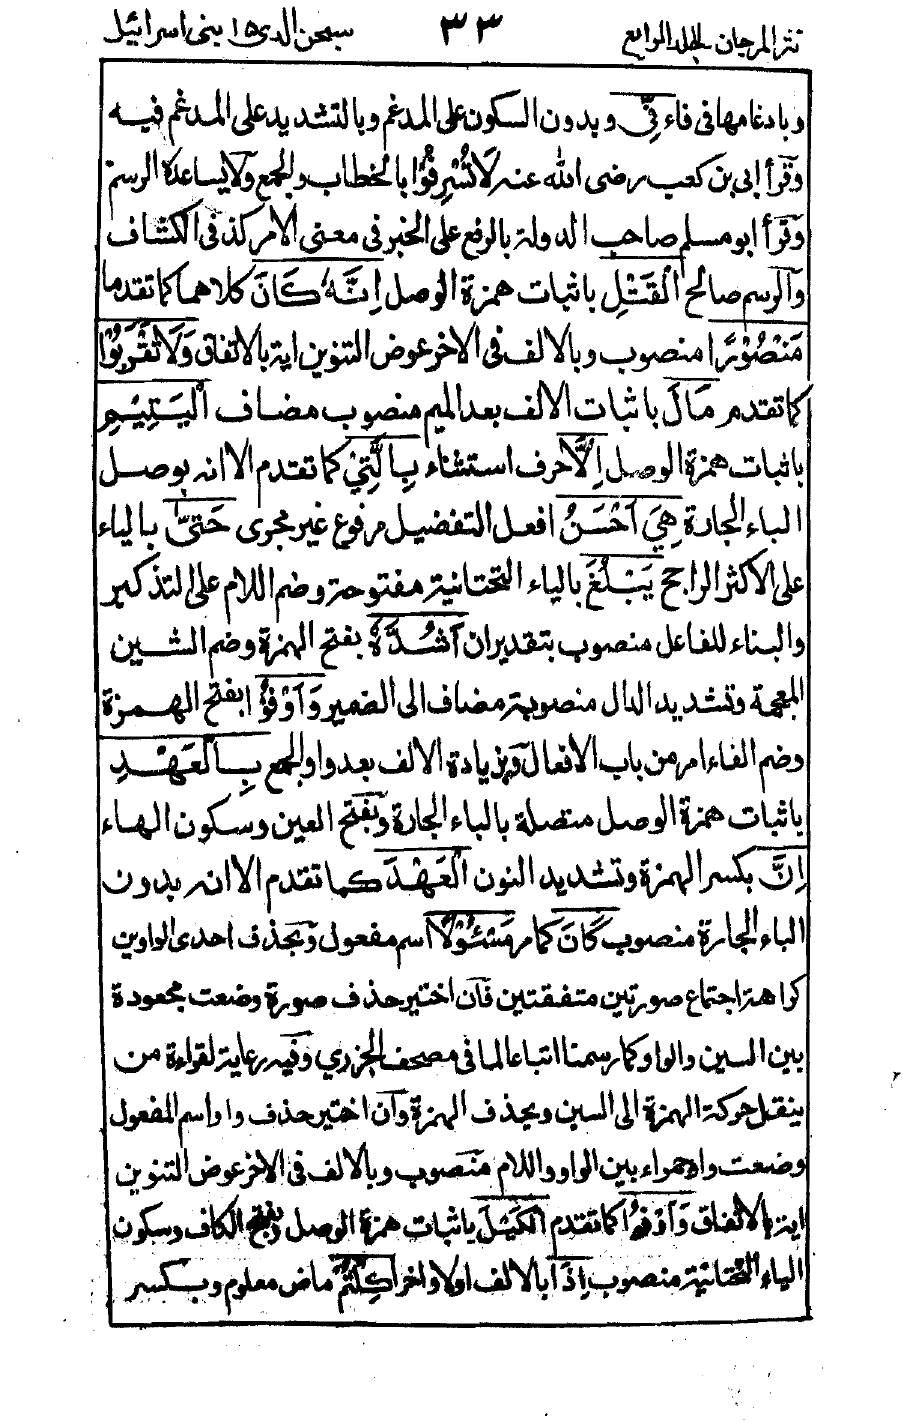 نثر المرجان الجلد الرابع ٣٣ سبحن الذي ١٥ بنى اسرائيل
وبادغامها فى فاء فِّى وبدون السكون على المدغم وبالتشديد على المدغم فيه
وقرأ ابى بن كعب رضى الله عنه لَا تُسْرِفُوْا بالخطاب والجمع ولا يساعده الرسم
وقرأ ابو مسلم صاحب الدولة بالرفع على الخبر فى معنى الامر كذا فى الكشاف
والرسم صالح الْقَتْلِ باثبات همزة الوصل اِنَّهٗ كَانَ كلاهما كما تقدما
مَنْصُوْرًا منصوب وبالالف فى الاخر عوض التنوين اية بالاتفاق وَلَا تَقْرَبُوْا
كما تقدم مَالَ باثبات الالف بعد الميم منصوب مضاف الْيَتِيْمِ
باثبات همزة الوصل اِلَّا حرف استثناء بِالَّتِيْ كما تقدم الا انه بوصل
الباء الجارة هِيَ اَحْسَنُ افعل التفضيل مرفوع غير مجرى حَتّٰى بالياء
على الاكثر الراجح يَبْلُغَ بالياء التحتانية مفتوحة وضم اللام على التذكير
والبناء للفاعل منصوب بتقدير ان اَشُدَّهٗ بفتح الهمزة وضم الشين
المعجمة وتشديد الدال منصوبة مضاف الى الضمير وَاَوْفُوْا بفتح الهمزة
وضم الفاء امر من باب الافعال وبزيادة الالف بعد واو الجمع بِالْعَهْدِ
باثبات همزة الوصل متصلة بالباء الجارة وبفتح العين وسكون الهاء
اِنَّ بكسر الهمزة وتشديد النون الْعَهْدَ كما تقدم الا انه بدون
الباء الجارة منصوب كَانَ كما مر مَسْـُٔوْلًا اسم مفعول وبحذف احدى الواوين
كراهة اجتماع صورتين متفقتين فان اختير حذف صورة وضعت مجعودة
بين السين والواو كما رسمنا اتباعا لما فى مصحف الجزري وفيه رعاية لقراءة من
ينقل حركة الهمزة الى السين ويحذف الهمزة وان اختير حذف واو اسم المفعول
وضعت واو حمراء بين الواو واللام منصوب وبالالف فى الاخر عوض التنوين
اية بالاتفاق وَاَوْفُوا كما تقدم الْكَيْلَ باثبات همزة الوصل وبفتح الكاف وسكون
الياء التحتانية منصوب اِذَا بالالف اولا واخرا كِلْتُمْ ماض معلوم وبكسر